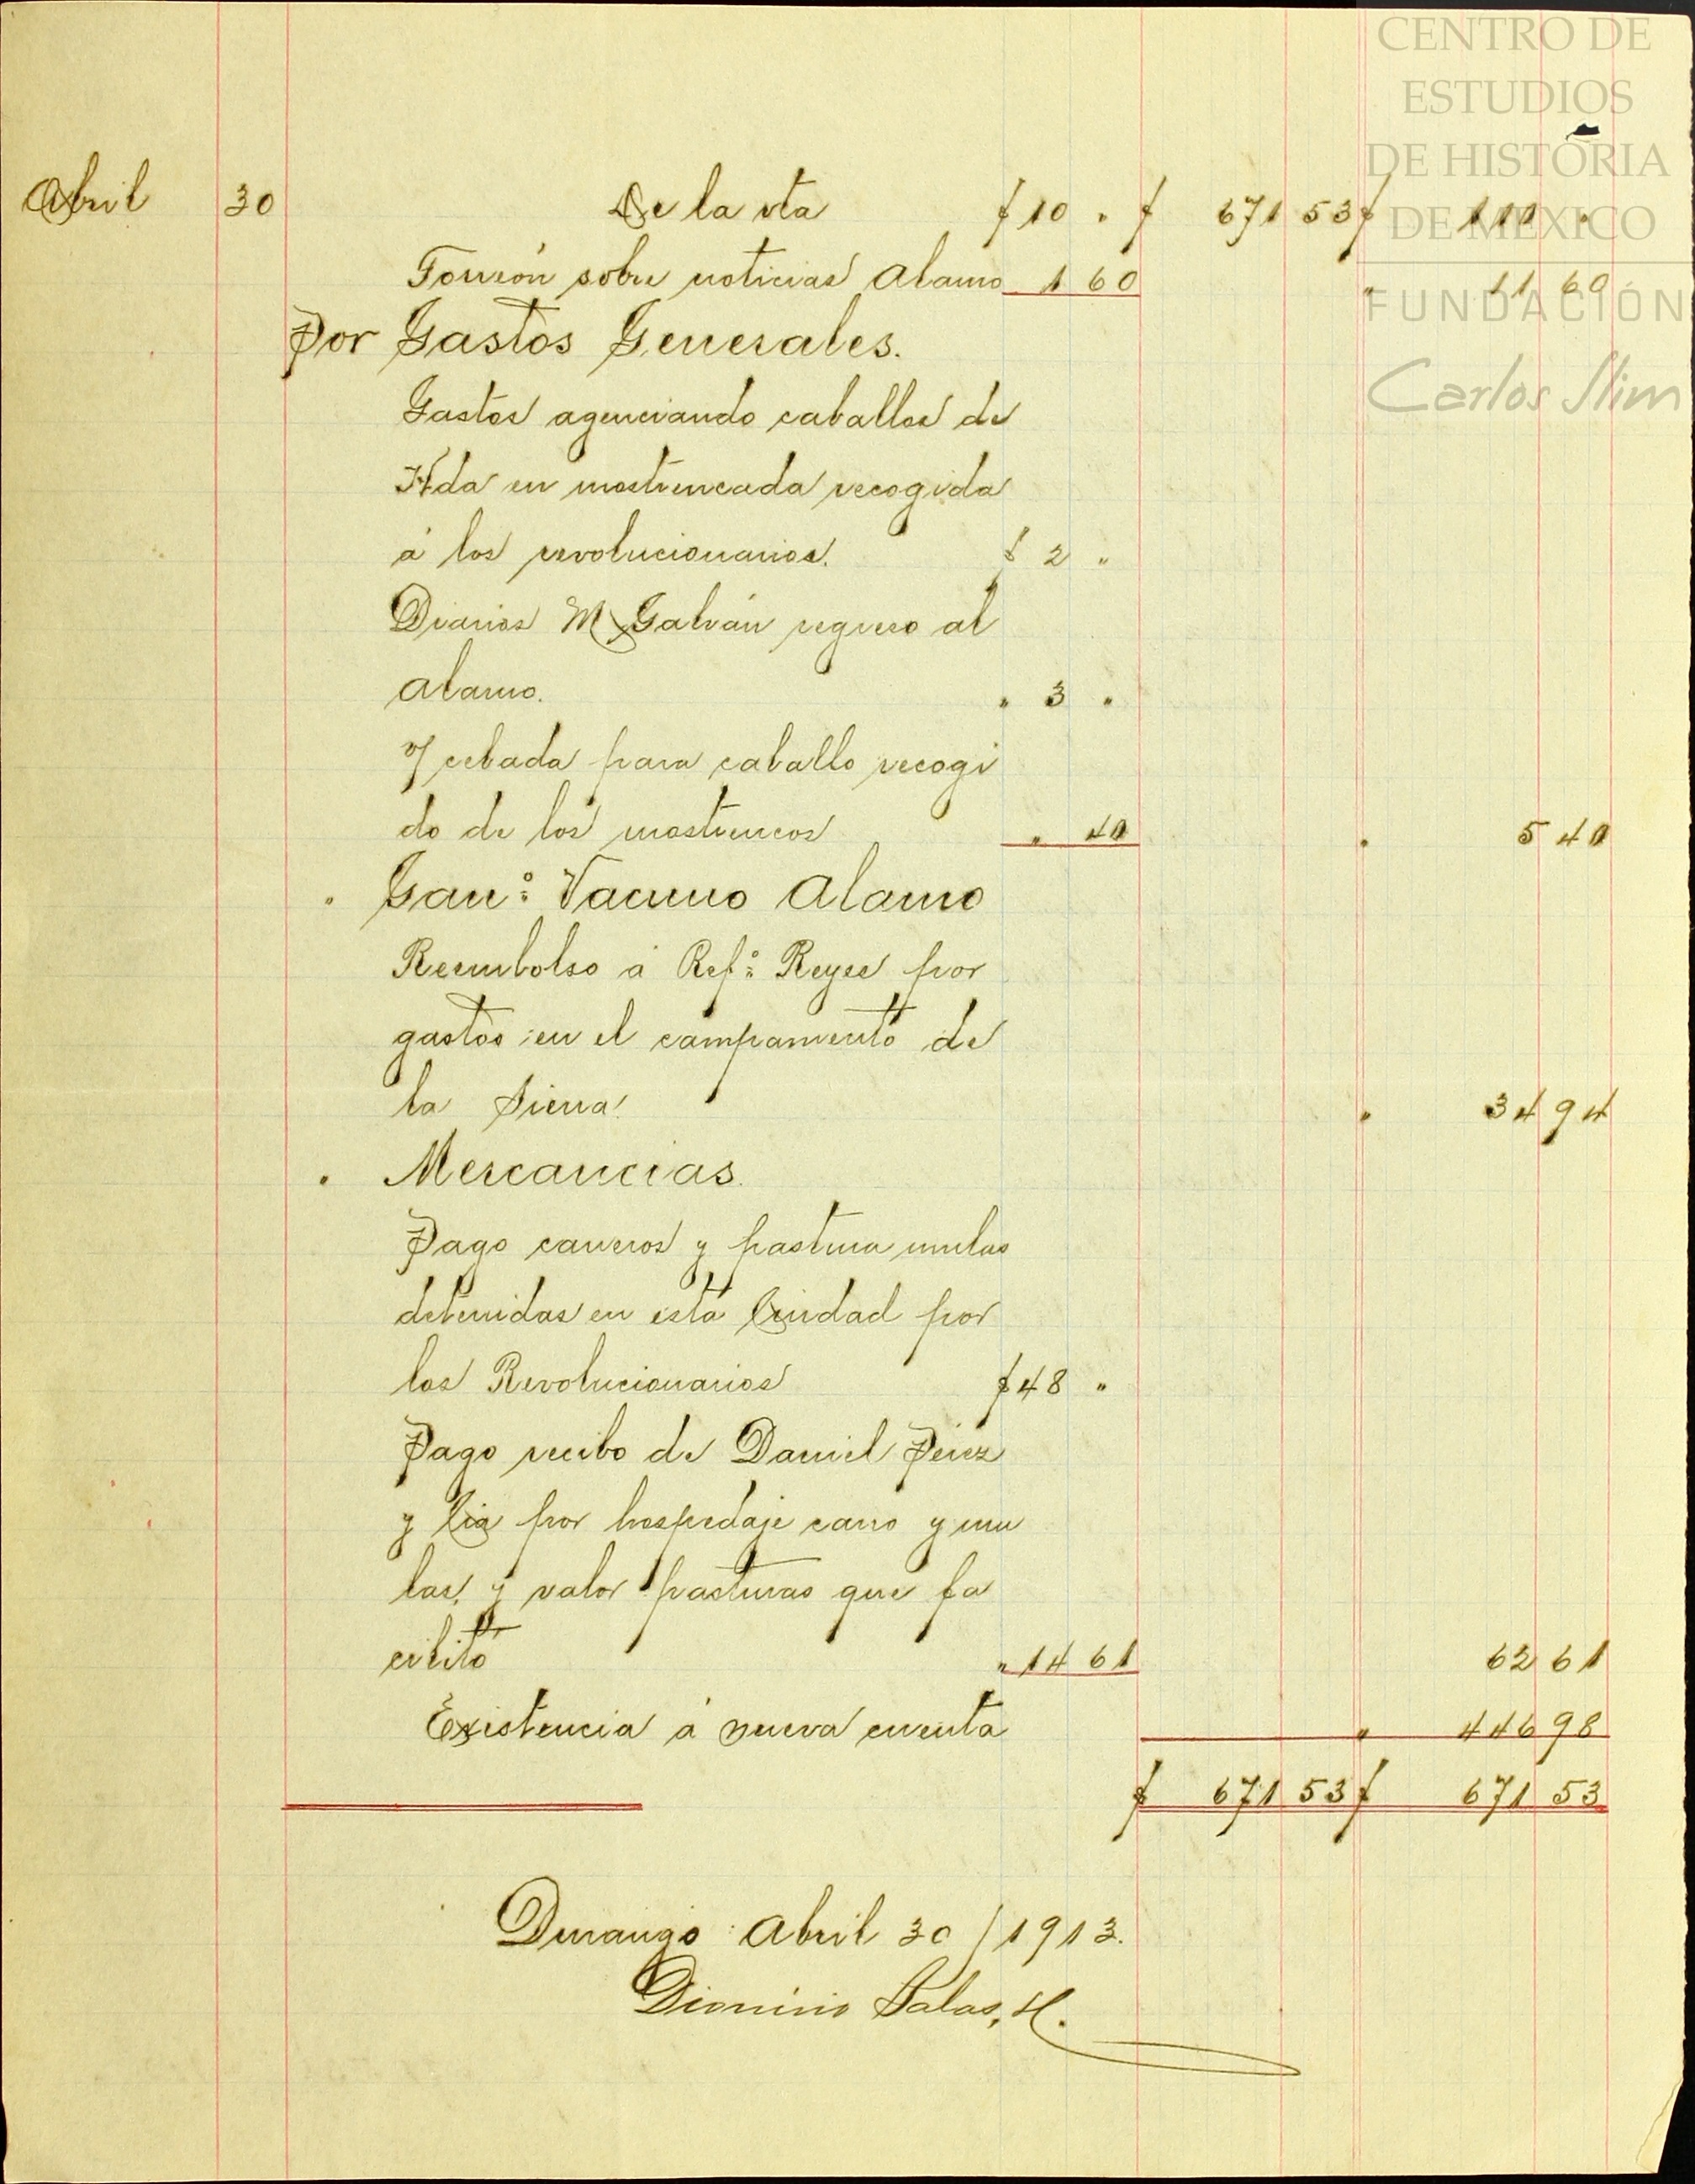 CENTRO DE
ESTUDIOS
DE HISTORIA
DE MÉXICO
FUNDACIÓN
Carlos Slim
Abril 30 De la vta $ 10 " $ 671 53 $ 110 "
Torreón sobre noticias Alamo 1 60 " 11 60
Por Gastos Generales.
Gastos agenciando caballos de
Hda en mostrencada recogida
á los revolucionarios. $ 2 "
Diarios M Galván regreso al
Alamo. " 3 "
cebada para caballo recogi
do de los mostrencos " 40 " 5 40
" Gano. Vacuno Alamo
Reembolso á Refo. Reyes por
gastos en el campamento de
la Sierra " 34 94
" Mercancias.
Pago carreros y pastura mulas
detenidas en esta Ciudad por
los Revolucionarios $ 48 "
Pago recibo de Daniel Pérez
y Cia por hospedaje carro y mu
las, y valor pasturas que fa
cilitó " 14 61 62 61
Existencia á nueva cuenta " 446 98
$ 671 53 $ 671 53
Durango Abril 30/1913.
Dionisio Salas, H.